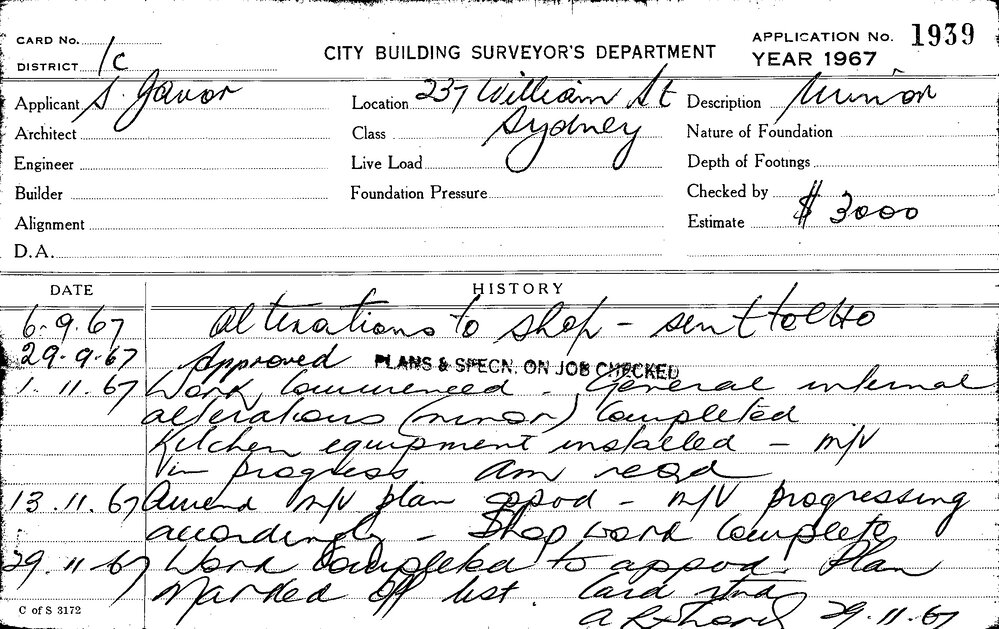 CARD No.
DISTRICT 1C
CITY BUILDING SURVEYOR'S DEPARTMENT
APPLICATION No. 1939
YEAR 1967
Applicant S. Gavor
Location 237 William St
Sydney
Description Minor
Architect
Class
Nature of Foundation
Engineer
Live Load
Depth of Footings
Builder
Foundation Pressure
Checked by
Alignment
Estimate $3000
D.A.
DATE HISTORY
6-9.67 Alterations to shop - sent to
29.9.67 Approved PLANS & SPECN. ON JOB CHECKED
1.11.67 Work commenced. General internal
alterations (minor) completed
Kitchen equipment installed - m/v
in progress Am
13.11.67 Amend m/v plan appvd - m/v progressing
accordingly - Shop work complete
29.11.67 Work completed to appvd. Plan
Marked off list. Card
29.11.67
C of S 3172